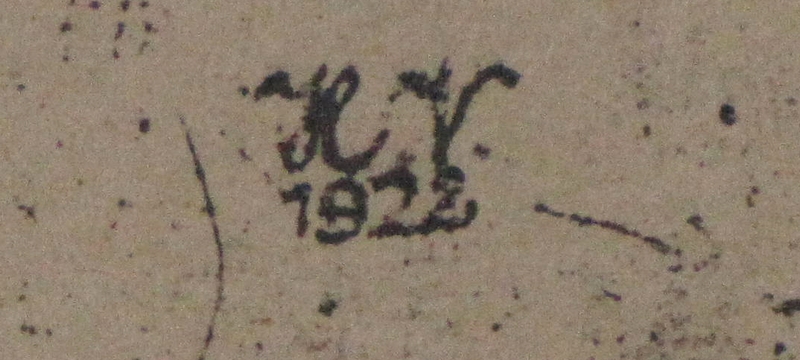 H V.
1922